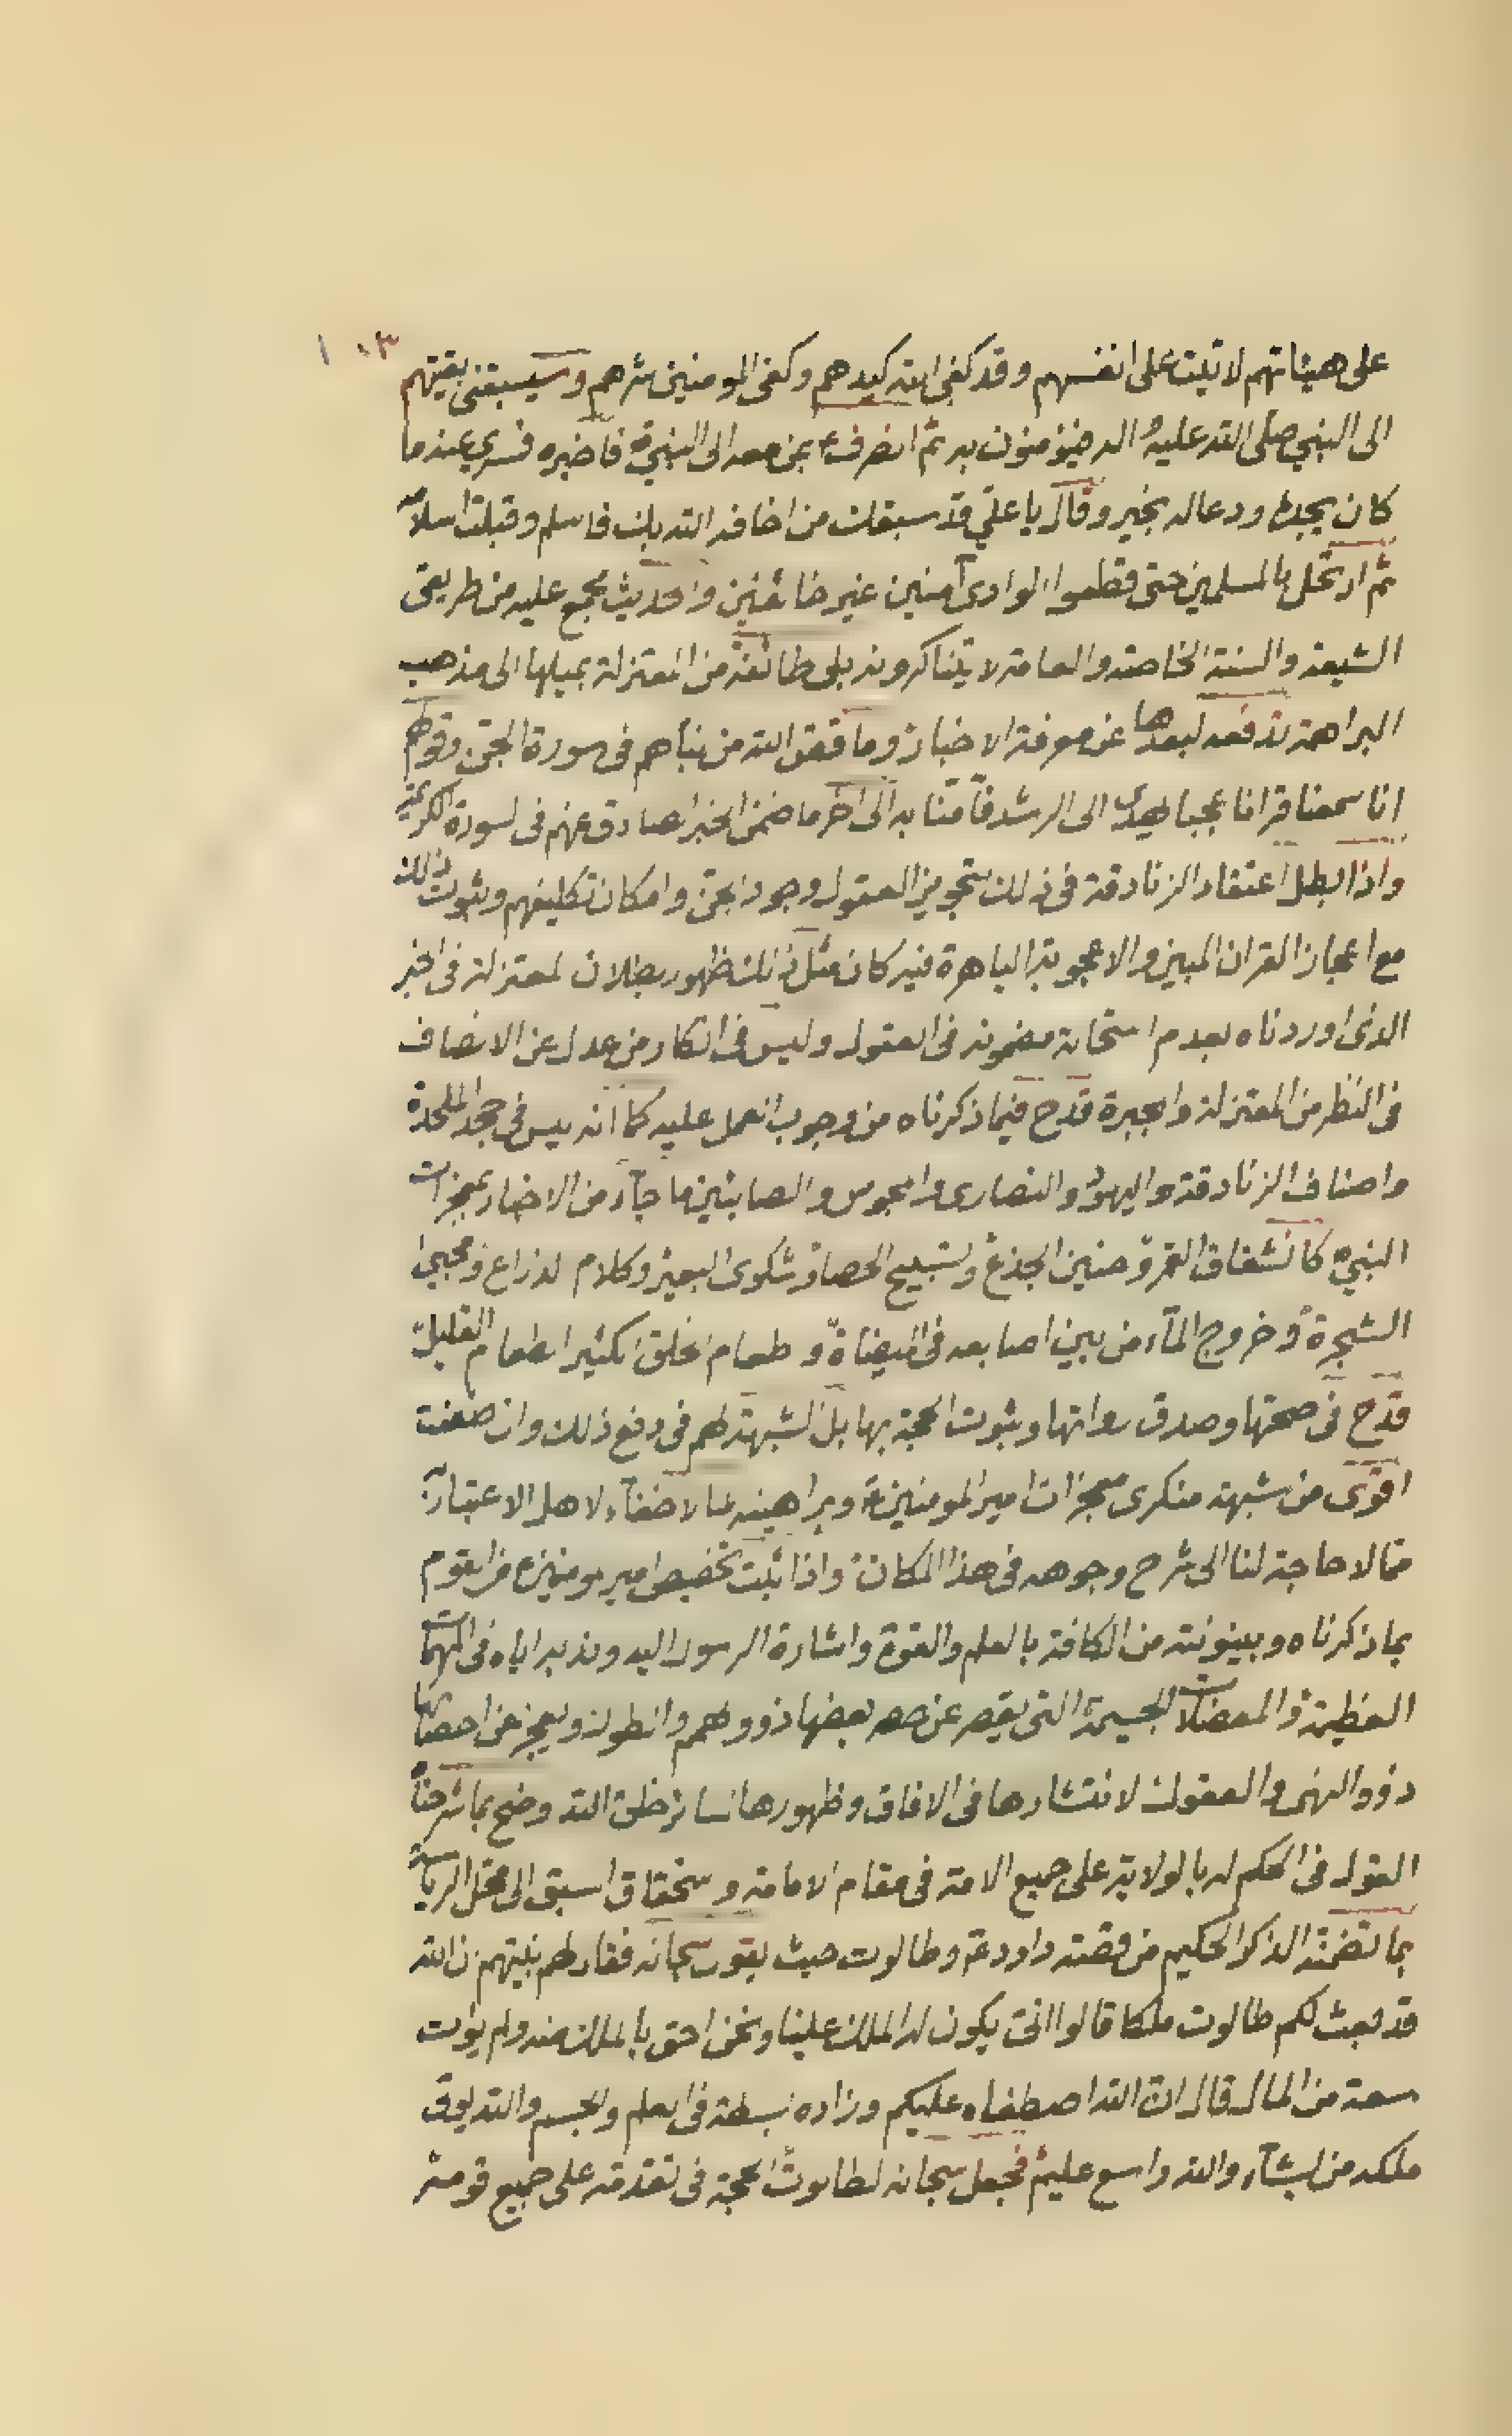 ١٠٣
على هيئاتهم لاتيت على انفسهم وقد كفى الله كيدهم وكفى المومنين شرهم وسيسبقنى بقيتهم
الى النبي صلى الله عليه واله فيؤمنون به ثم انصرف ع بمن معه الى النبي ص فاخبره فسرى عنه ما
كان يجده ودعا له بخير وقال يا علي قد سبقك من اخافه الله بك فاسلم وقبلت اسلامه
ثم ارتحل بالمسلمين حتى قطعوا الوادى آمنين غير خائفين والحديث مجمع عليه من طريقى
الشيعة والسنة الخاصة والعامة لا يتناكرونه بلى طائفة من المعتزلة بميلها الى مذهب
البراهمة تدفعه لبعدها عن معرفة الاخبار وما قص الله من نبأهم فى سورة الجن وقولهم
انا سمعنا قرانا عجبا يهدى الى الرشد فآمنا به الى اخر ما ضمن الخبر الصادق عنهم فى السورة الكريمة
واذا بطل اعتقاد الزنادقة فى ذلك بتجويز العقول وجود الجن وامكان تكليفهم وثبوت ذلك
مع اعجاز القران المبين والاعجوبة الباهرة فيه كان مثل ذلك ظهور بطلان المعتزلة فى الخبر
الذى اوردناه بعدم استحالة مضمونه فى العقول وليس فى انكار من عدل عن الانصاف
فى النظر من المعتزلة والمجبرة قدح فيما ذكرناه من وجوب العمل عليه كما انه ليس فى جحد الملحدة
واصناف الزنادقة واليهود والنصارى والمجوس والصابئين ما جآء من الاخبار بمعجزات
النبي ص كانشقاق القمر وحنين الجذع وتسبيح الحصا وشكوى البعير وكلام الذراع ومجيئ
الشجرة وخروج المآء من بين اصابعه فى الميضاة و طعام الخلق الكثير الطعام القليل
قدح فى صحتها وصدق رواتها وثبوت الحجة بها بل الشبهة لهم فى دفع ذلك وان ضعفت
اقوى من شبهة منكرى معجزات امير المومنين ع وبراهينه لما لا خفآء لاهل الاعتبار به
مما لا حاجة لنا الى شرح وجوهه فى هذا المكان واذا ثبت تخصيص امير المومنين ع من القوم
بما ذكرناه وبينونته من الكافة بالعلم والقوة واشارة الرسول اليه وندبه اياه فى المهمات
العظيمة والمعضلات الجسيمة التى يقصر عن حصر بعضها ذوو الهمم والطول ويعجز عن احصائها
ذوو النهى والعقول لانتشارها فى الافاق وظهورها لسائر خلق الله وضح بما شرحنا
القول فى الحكم له بالولاية على جميع الامة فى مقام الامامة و ستحقاق السبق الى محل الرياسة
بما تضمنه الذكر الحكيم من قصة داود ع وطالوت حيث يقول سبحانه فقال لهم نبيهم ان الله
قد بعث لكم طالوت ملكا قالوا انى يكون له الملك علينا ونحن احق بالملك منه ولم يؤت
سعة من المال قال ان الله اصطفاه عليكم وزاده بسطة فى العلم والجسم والله يؤتى
ملكه من يشآء والله واسع عليم فجعل سبحانه لطالوت الحجة فى تقدمه على جميع قومه